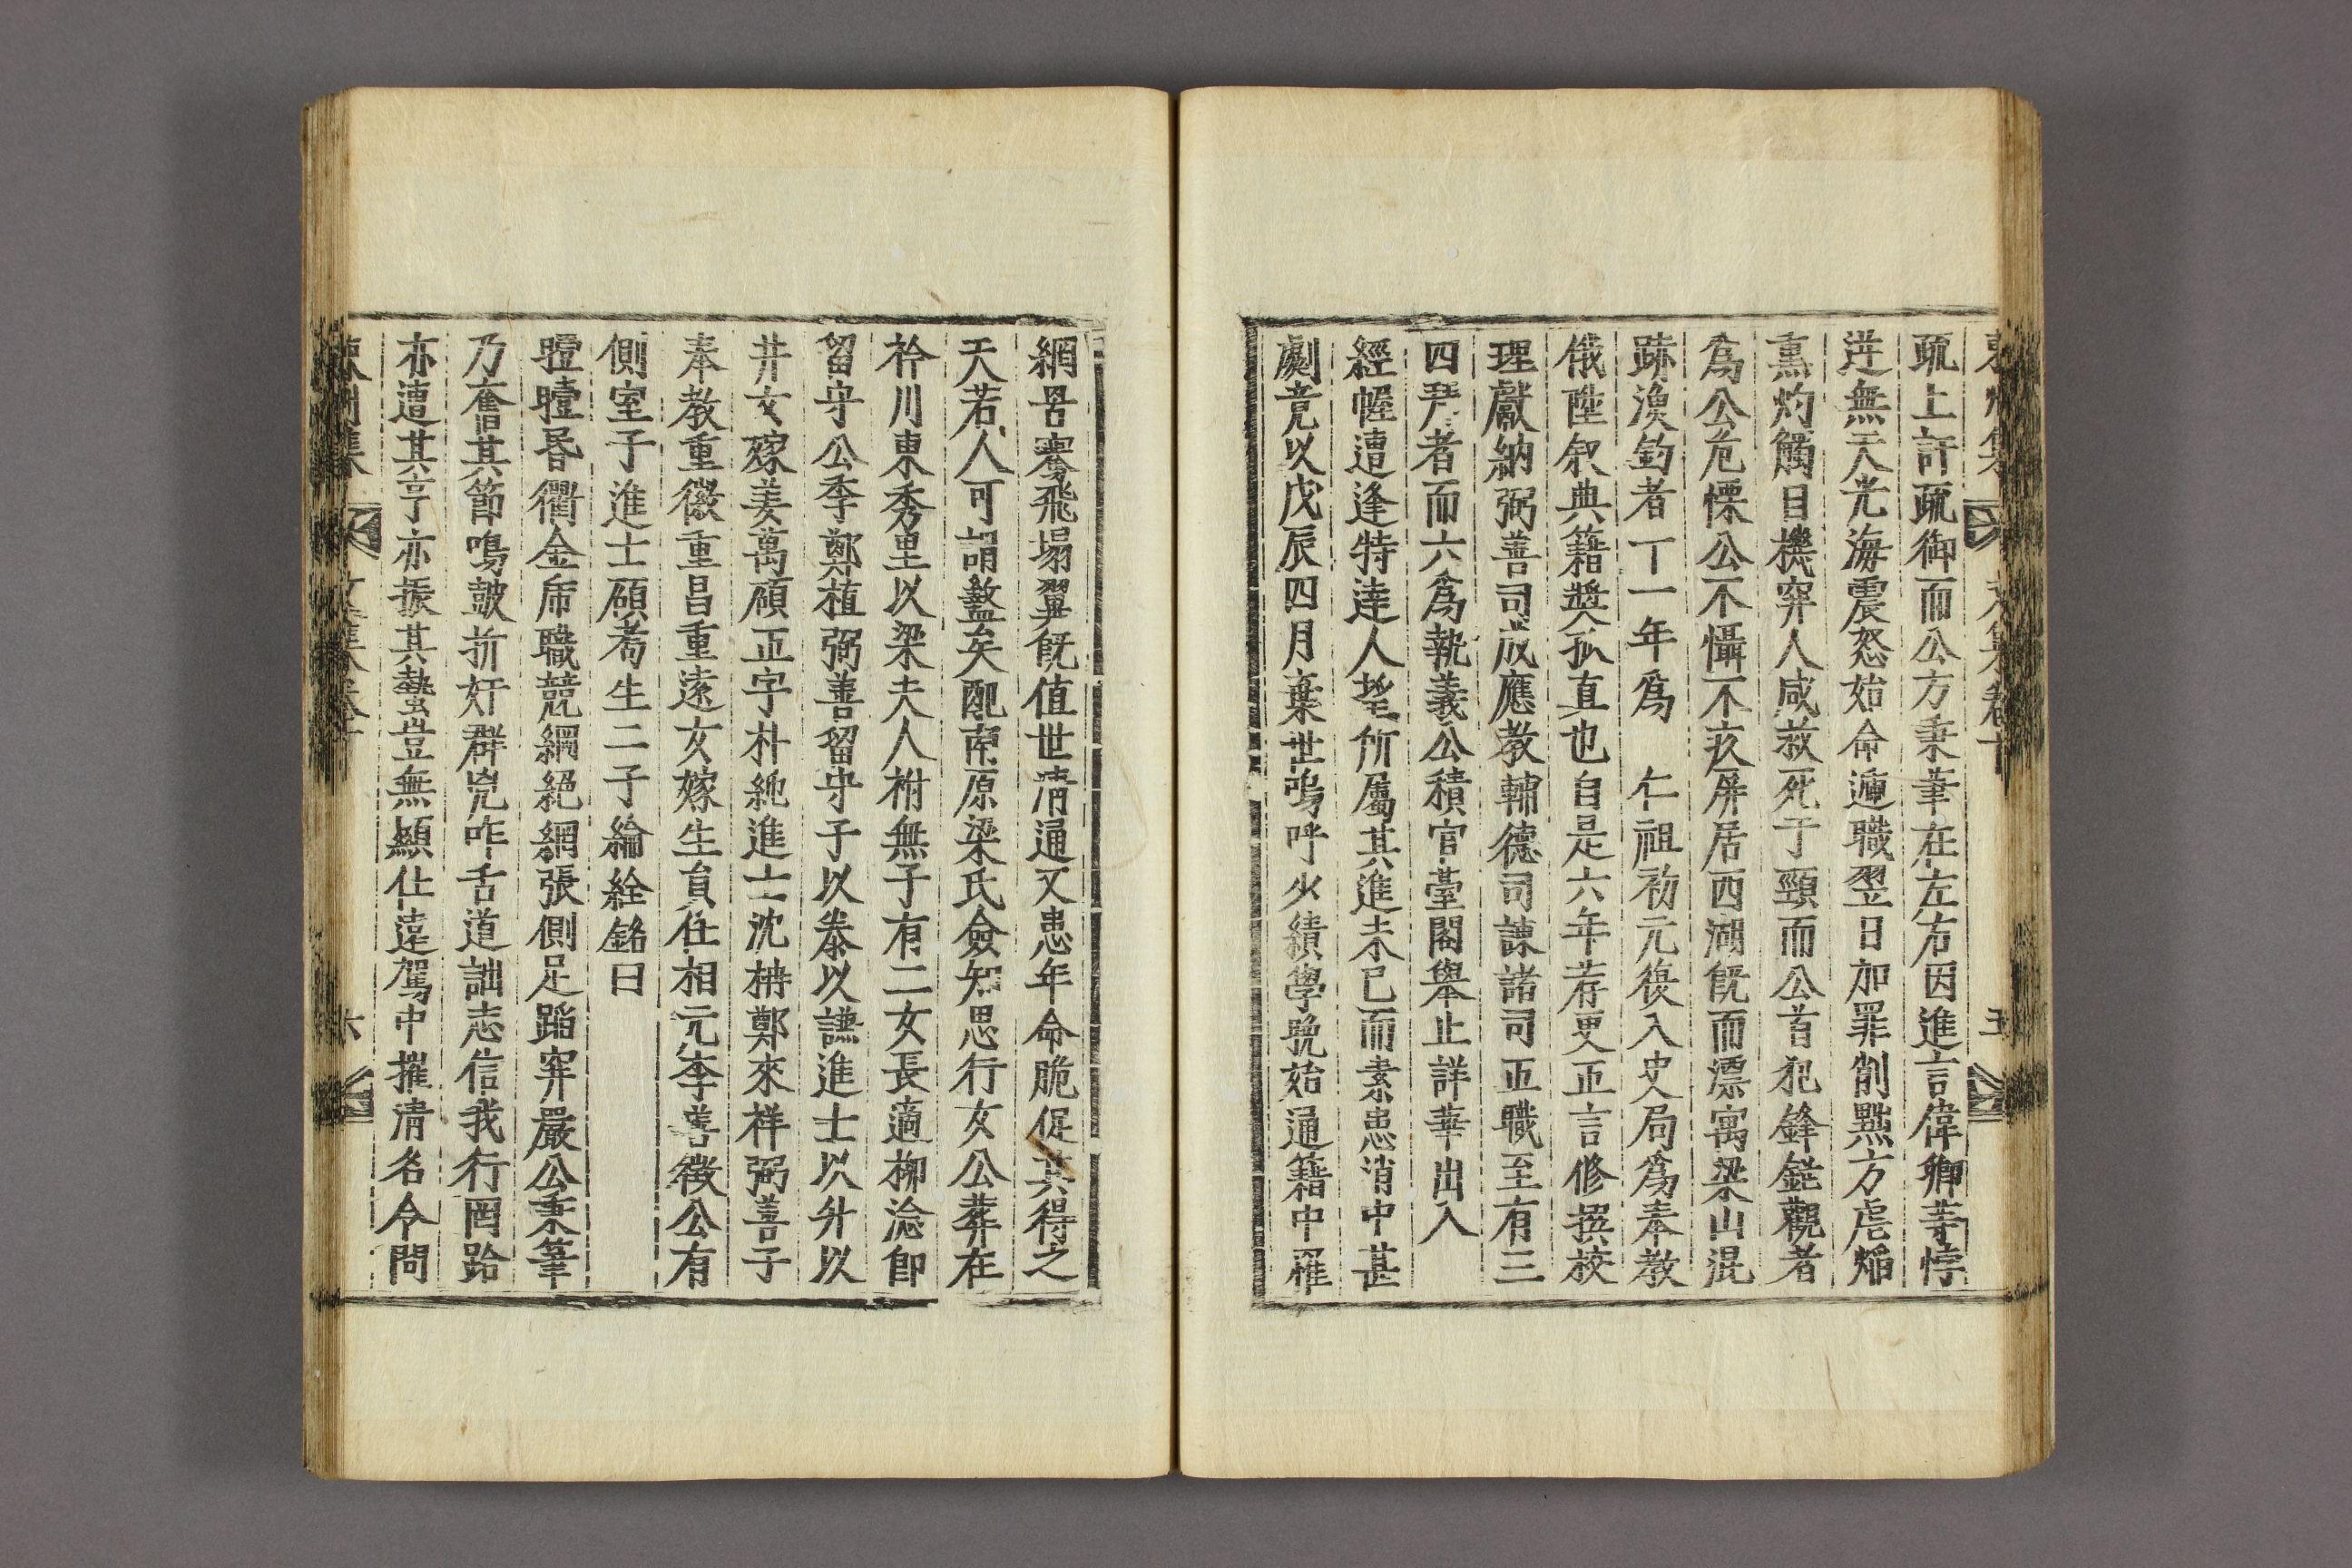 疏上訐疏御而公方秉筆在左右因進言偉卿等悖
逆無天光海震怒始命遞職翌日加罪削黜方虐焰
熏灼觸目機穽人咸救死于頸而公首犯鋒鋩觀者
爲公危慄公不懾不疚屏居西湖旣而漂寓梁山混
跡漁釣者一年爲 仁祖初元復入史局爲奉教
俄陞敘典籍奬孤直也自是六年荐更正言修撰校
理獻納弼善司成應教輔德司諫諸司正職至有三
四尸者而六爲執義公積官臺閣舉止詳華出入
經幄遭逢特達人望所屬其進未已而素患消中甚
劇竟以戊辰四月棄世嗚呼少績學晩始通籍中罹
網罟騫飛塌翼旣值世淸通又患年命脆促其得之
天若人可謂盭矣配南原梁氏僉知思行女公葬在
衿川東秀里以梁夫人祔無子有二女長適柳淰卽
留守公季鄭植弼善留守子以泰以謙進士以升以
井女嫁姜萬碩正字朴純進士沈枏鄭來祥弼善子
奉教重徽重昌重遠女嫁生員任相元李善徵公有
側室子進士碩耉生二子綸絟銘曰
曀曀昏衢金虎職競綱絕網張側足蹈穽嚴公秉筆
乃奮其節鳴皷折奸群兇咋舌道詘志信我行罔跲
亦遭其亨亦振其蟄豈無顯仕遠駕中摧淸名令問
東州集 文集卷十 六